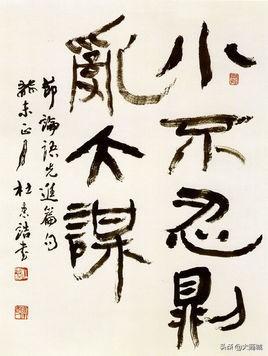 小不忍則
亂大謀
節論語先進篇句
未正月 杜忠誥書
头条 @大画城